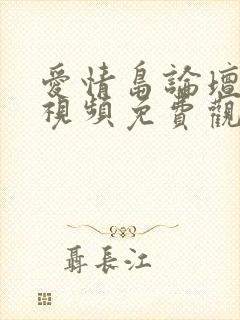 愛情島論壇
視頻免費觀
聶長江